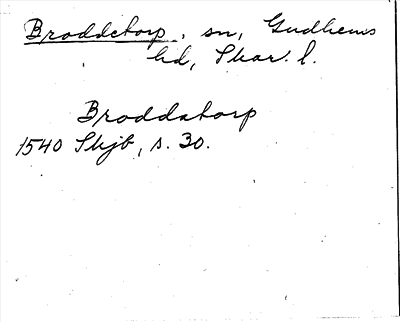 Broddetorp, sn, Gudhems
hd, Skar. l.
Broddatorp
1540 Skjb, s. 30.